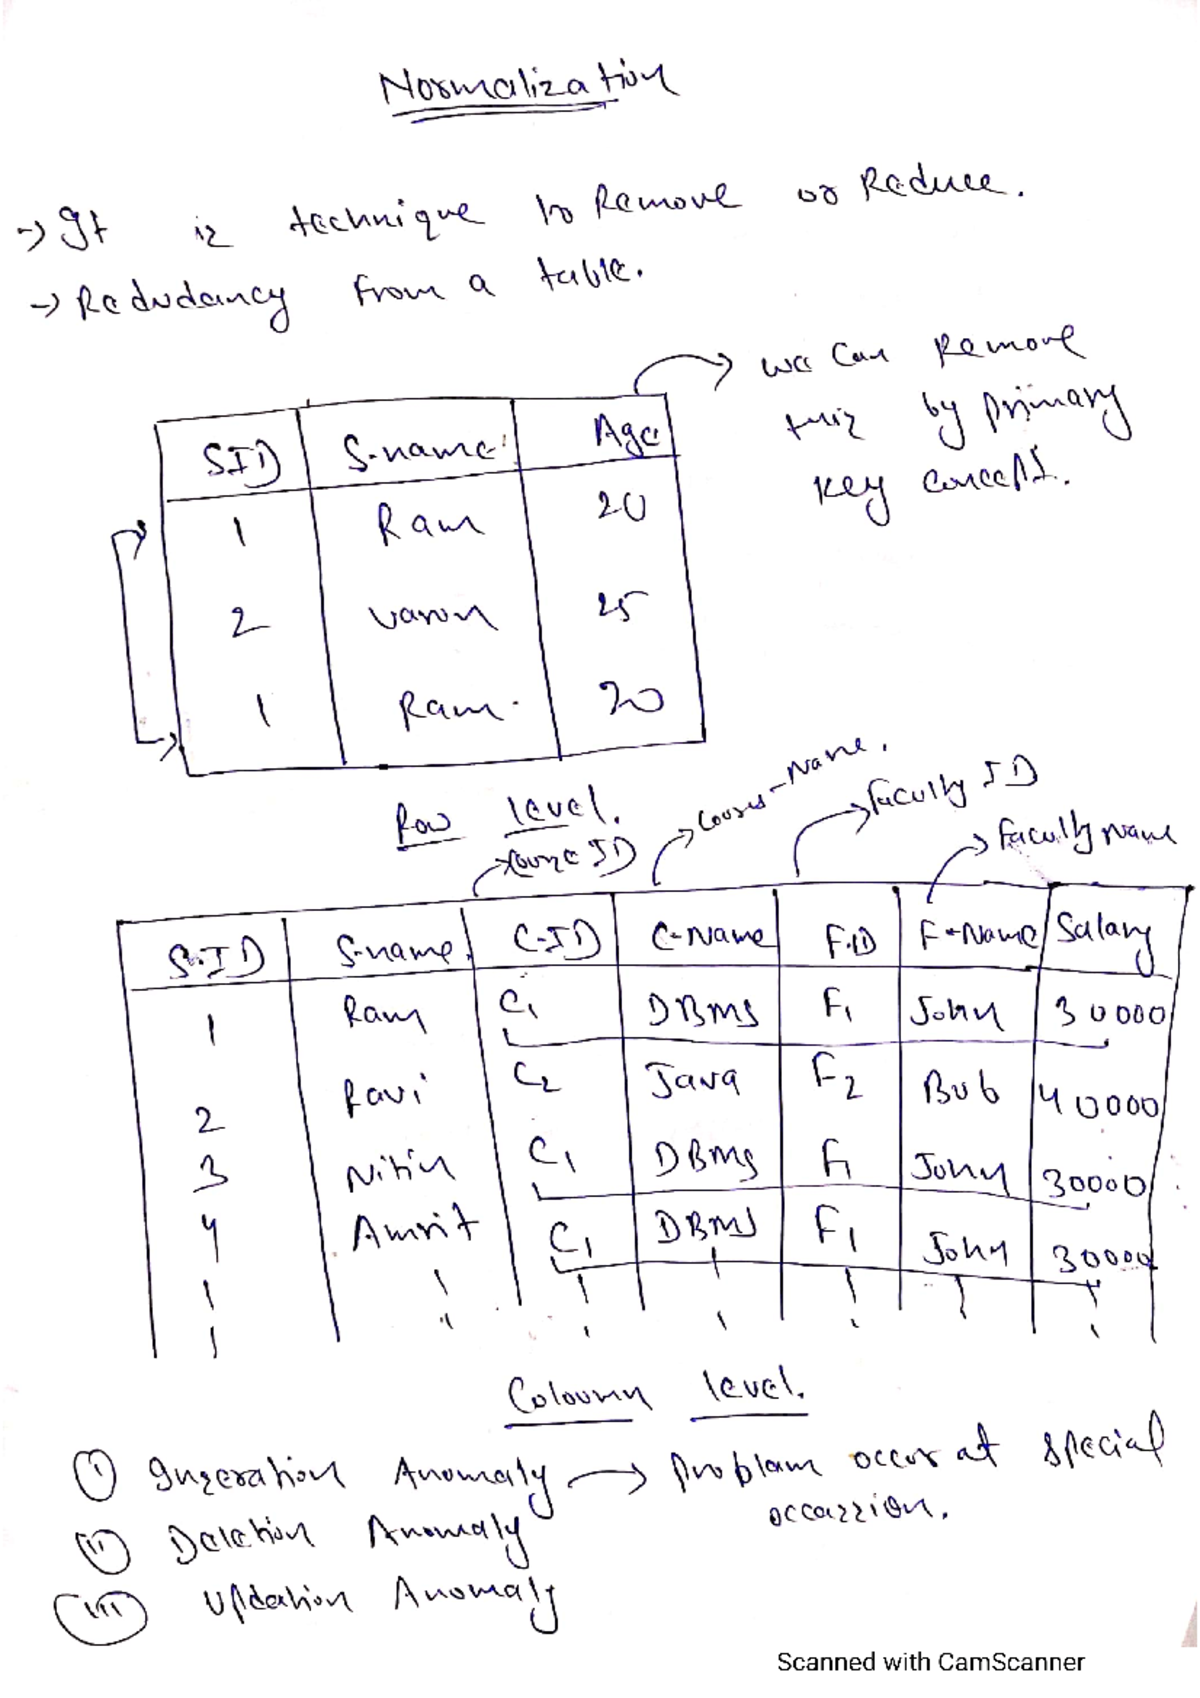 Normalization
→ It is technique to Remove or Reduce.
→ Redudancy from a table.
→ we can Remove
this by primary
key concept.
SID S-name Age
1 Ram 20
2 varun 25
1 Ram 20
Row level.
→ Course ID
→ Course-Name.
→ Faculty ID
→ Faculty Name
S.ID S-name C-ID C-Name F.ID F-Name Salary
1 Ram C1 DBMS F1 John 30000
2 Ravi C2 Java F2 Bob 40000
3 Nitin C1 DBMS F1 John 30000
4 Amrit C1 DBMS F1 John 30000
Coloumn level.
(i) Inseration Anomaly → Problam occur at special
occassion.
(ii) Deletion Anomaly
(iii) Updation Anomaly
Scanned with CamScanner